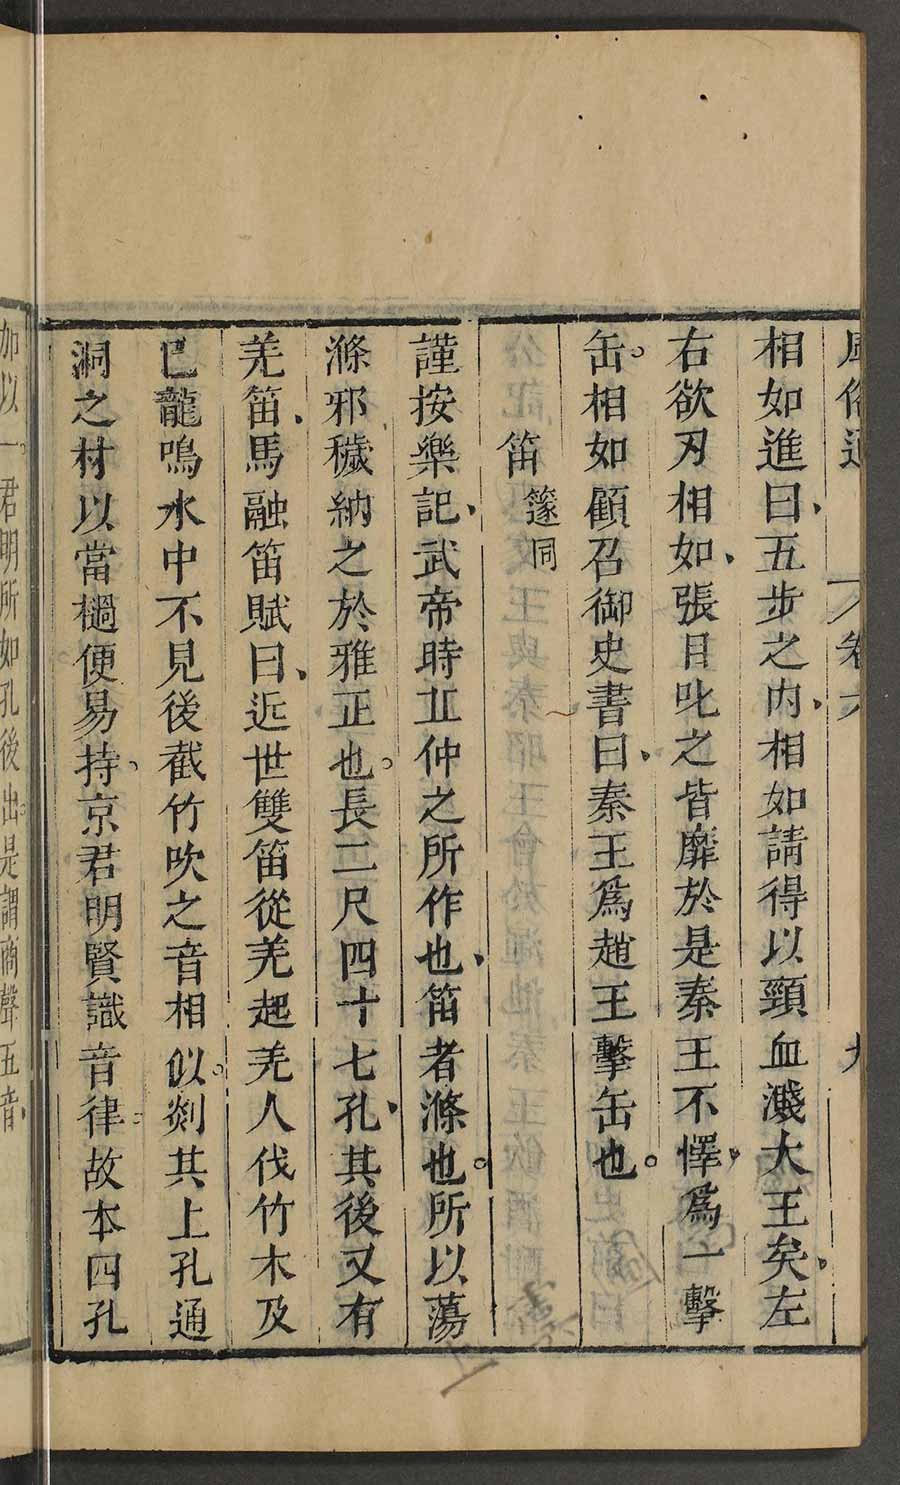 風俗通 卷六 九
相如進曰五步之内相如請得以頸血濺大王矣左
右欲刃相如張目叱之皆靡於是秦王不懌爲一擊
缶相如顧召御史書曰秦王爲趙王擊缶也
笛 篴同
謹按樂記武帝時丘仲之所作也笛者滌也所以蕩
滌邪穢納之於雅正也長二尺四寸七孔其後又有
羌笛馬融笛賦曰近世雙笛從羌起羌人伐竹木及
巳龍鳴水中不見後截竹吹之音相似剡其上孔通
洞之材以當檛便易持京君明賢識音律故本四孔
加以一君明所加孔後出是謂商聲五音